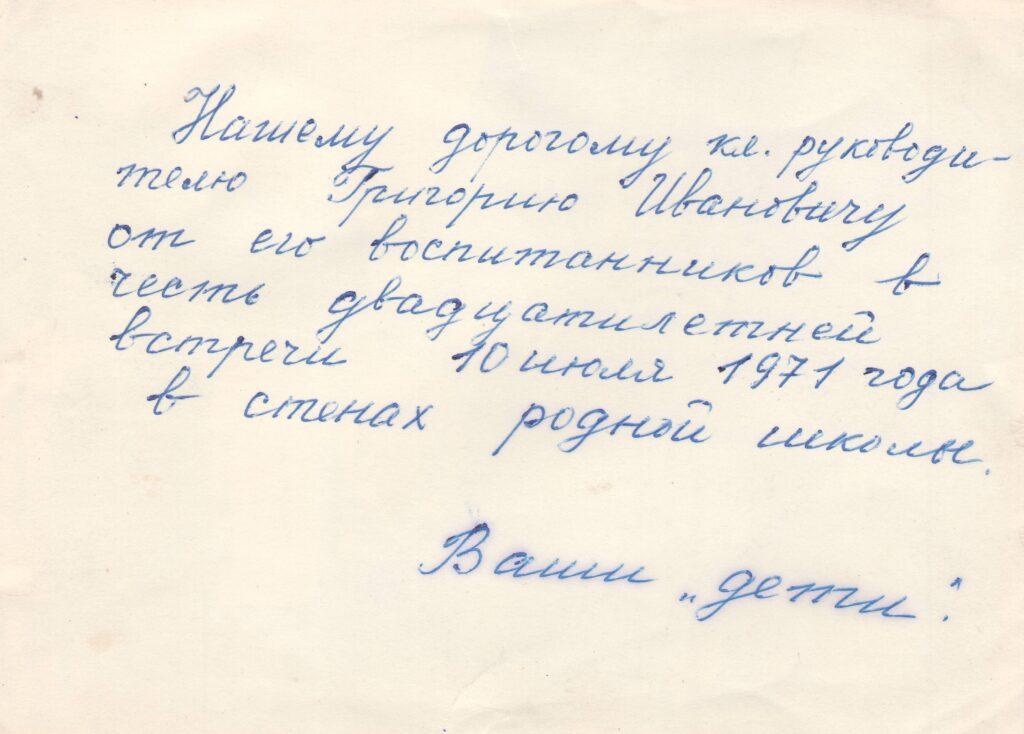 Нашему дорогому кл. руководи-
телю Григорию Ивановичу
от его воспитанников в
честь двадцатилетней
встречи 10 июля 1971 года
в стенах родной школы.
Ваши „дети".